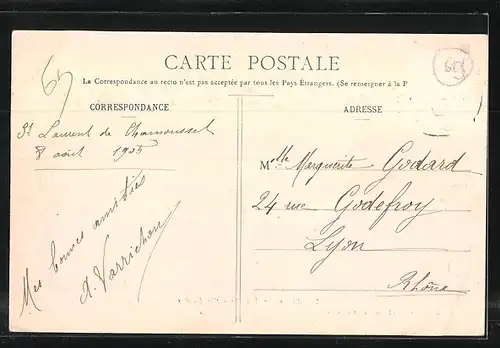 CARTE POSTALE
La Correspondance au recto n'est pas acceptée par tous les Pays Étrangers. (Se renseigner à la P
69
CORRESPONDANCE
ADRESSE
St Laurent de Chamousset
8 août 1905
Mes bonnes amitiés
A. Varrichon
Mlle Marguerite Godard
24 rue Godefroy
Lyon
Rhône